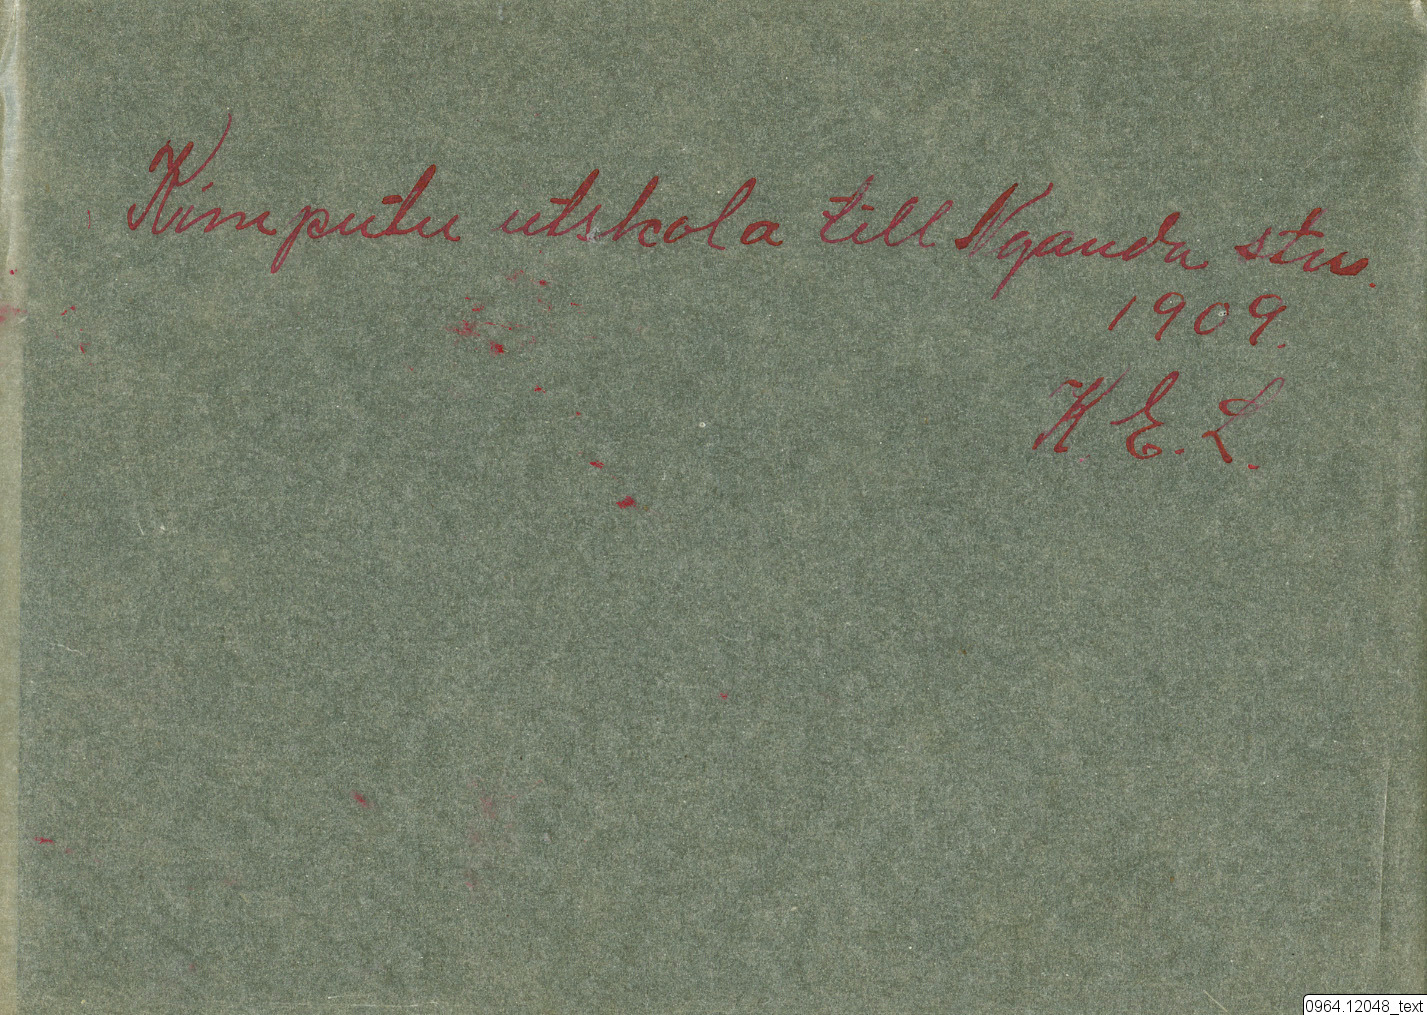 Kimputu utskola till Nganda stn.
1909.
K. E. L.
0964.12048_text